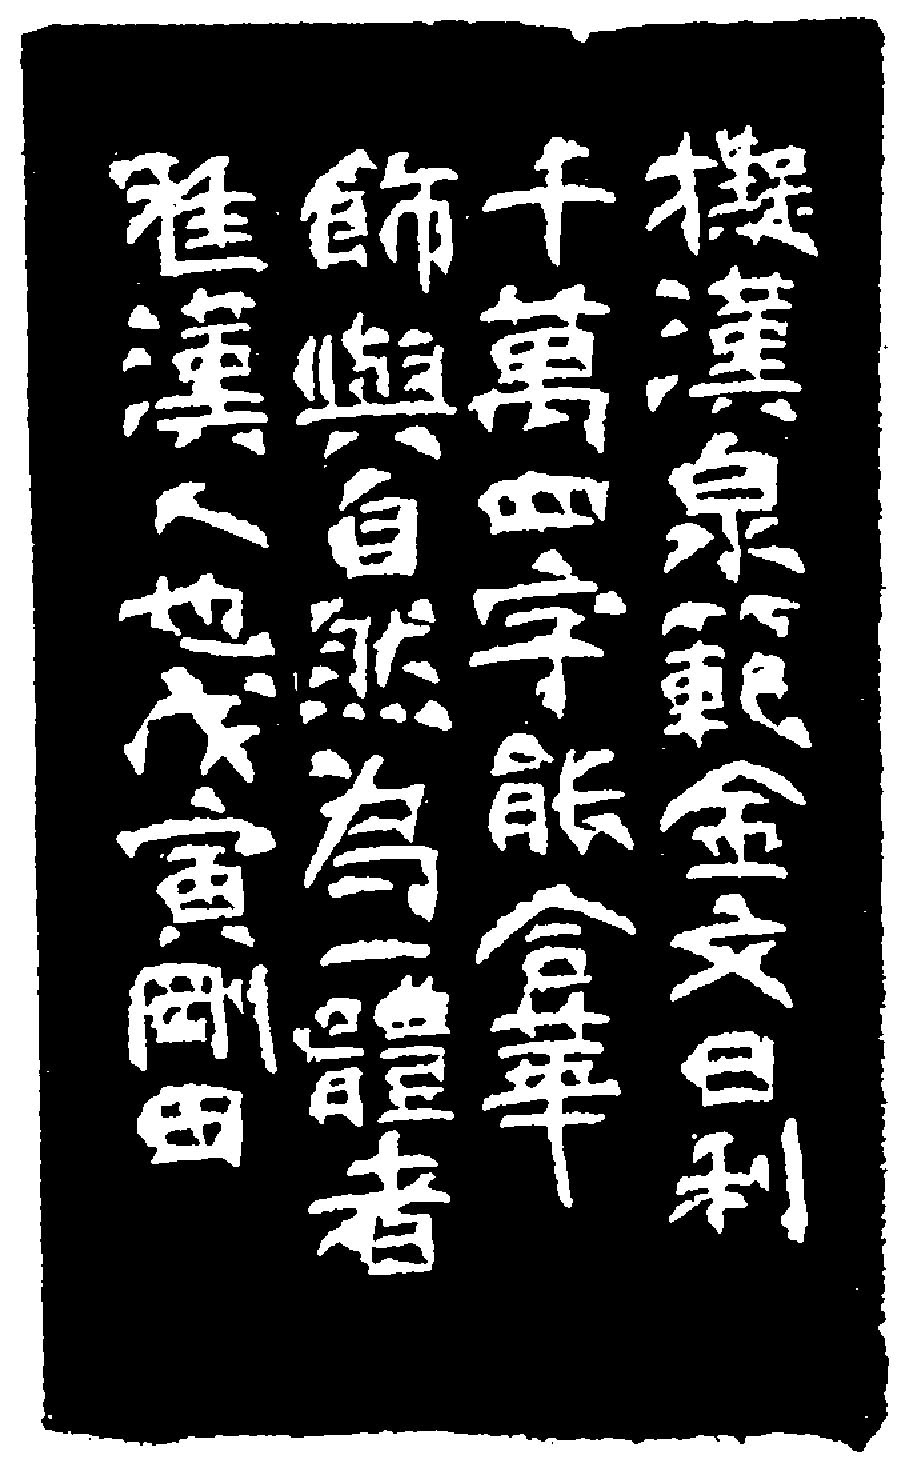 擬漢泉範金文日利
千萬四字能含華
飾與自然為一體者
惟漢人也戊寅剛田